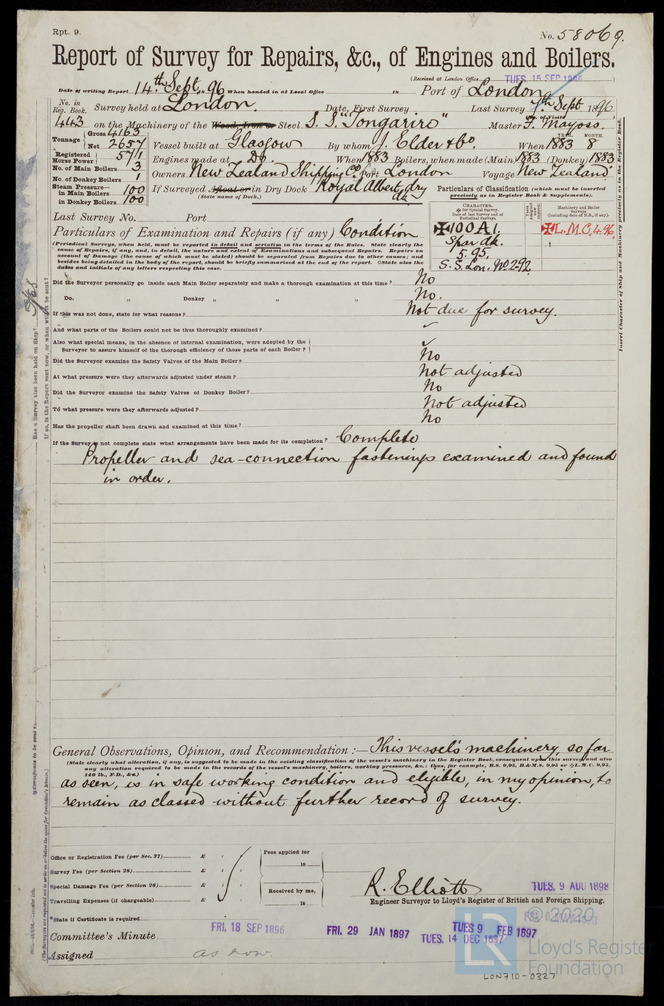 Rpt. 9.
No. 58069.
Report of Survey for Repairs, &c., of Engines and Boilers.
(Received at London Office TUES. 15 SEP 1896
Date of writing Report 14th Sept. 96 When handed in at Local Office 18 Port of London
No. in Reg. Book. Survey held at London. Date, First Survey Last Survey 7th Sept 1896
443 on the Machinery of the Wood, Iron or Steel S.S. "Tongariro" Master F. Mayoss.
Tonnage Gross 4163 Net 2657 Vessel built at Glasgow By whom J. Elder & Co. When 1883 8
YEAR. MONTH.
Registered Horse Power 571 Engines made at Do. When 1883 Boilers, when made (Main) 1883 (Donkey) 1883
No. of Main Boilers 3
No. of Donkey Boilers 1 Owners New Zealand Shipping Co. Port London Voyage New Zealand
Steam Pressure— in Main Boilers 100 If Surveyed Afloat or in Dry Dock Royal Albert dry dk
in Donkey Boilers 100 (State name of Dock.)
Particulars of Classification (which must be inserted precisely as in Register Book & Supplements).
Last Survey No. Port
Particulars of Examination and Repairs (if any) Condition
✠100A1.
Spar dk.
5.95.
S.S. Lon. No2-92
✠L.M.C. 4.96
(Periodical Surveys, when held, must be reported in detail and seriatim in the terms of the Rules. State clearly the
cause of Repairs, if any, and, in detail, the nature and extent of Examinations and subsequent Repairs. Repairs on
account of Damage (the cause of which must be stated) should be separated from Repairs due to other causes; and
besides being detailed in the body of the report, should be briefly summarised at the end of the report. State also the
dates and initials of any letters respecting this case.
Did the Surveyor personally go inside each Main Boiler separately and make a thorough examination at this time? No
Do. " Donkey " " " " No.
If this was not done, state for what reasons? Not due for survey.
And what parts of the Boilers could not be thus thoroughly examined?
Also what special means, in the absence of internal examination, were adopted by the
Surveyor to assure himself of the thorough efficiency of those parts of each Boiler?
Did the Surveyor examine the Safety Valves of the Main Boiler? No
At what pressure were they afterwards adjusted under steam? Not adjusted
Did the Surveyor examine the Safety Valves of Donkey Boiler? No
To what pressure were they afterwards adjusted? Not adjusted
Has the propeller shaft been drawn and examined at this time? No
If the Survey is not complete state what arrangements have been made for its completion? Complete
Propeller and sea-connection fastenings examined and found
in order.
General Observations, Opinion, and Recommendation:— This vessel's machinery, so far
(State clearly what alteration, if any, is suggested to be made in the existing classification of the vessel's machinery in the Register Book, consequent upon this survey and also
any alteration required to be made in the records of the vessel's machinery, boilers, working pressures, &c.
as seen, is in safe working condition and eligible, in my opinion, to
remain as classed without further record of survey.
Office or Registration Fee (per Sec. 27) £ : :
Survey Fee (per Section 28) £ : :
Special Damage Fee (per Section 28) £ : :
Travelling Expenses (if chargeable) £ : :
Fees applied for 18
Received by me, 18
R. Elliott
Engineer Surveyor to Lloyd's Register of British and Foreign Shipping.
TUES. 9 AUG 1898
State if Certificate is required
Committee's Minute FRI. 18 SEP 1896 FRI. 29 JAN 1897 TUES 9 FEB 1897
TUES. 14 DEC 1897
Assigned as now.
© 2020
LR
Lloyd's Register
Foundation
LON710-0327